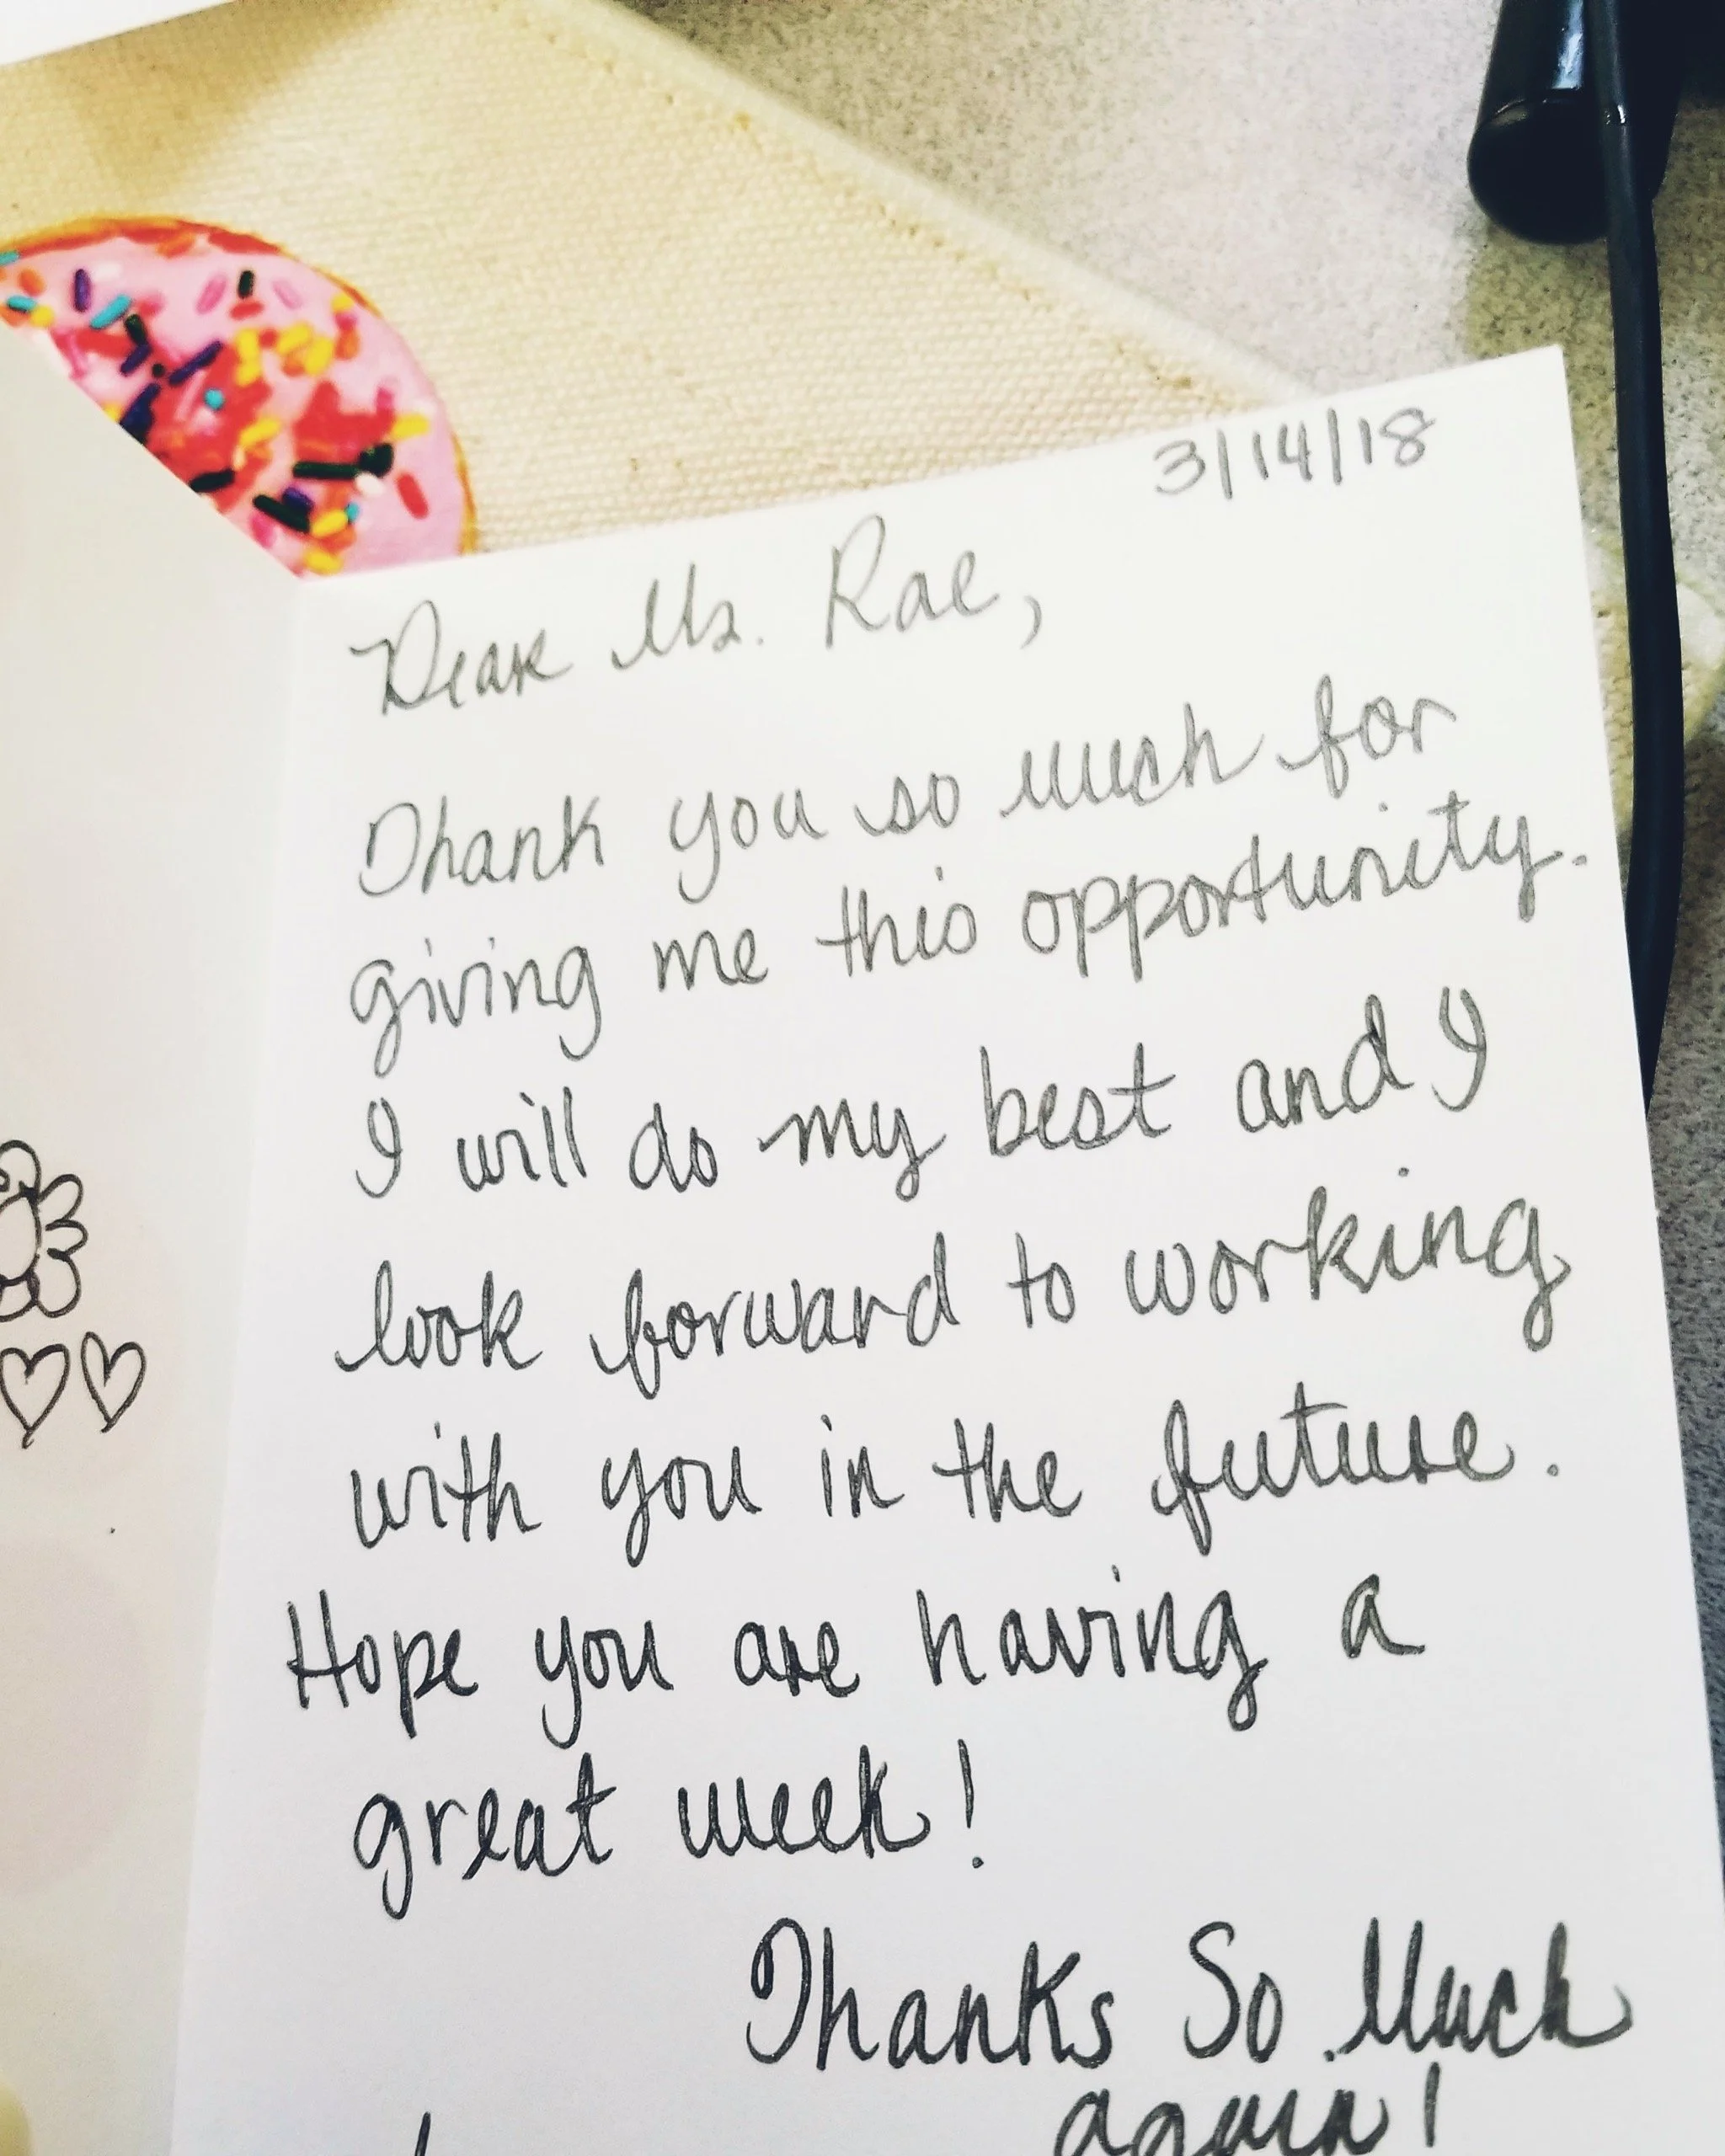 3/14/18
Dear Ms. Rae,
Thank you so much for
giving me this opportunity.
I will do my best and I
look forward to working
with you in the future.
Hope you are having a
great week!
Thanks So Much
again!